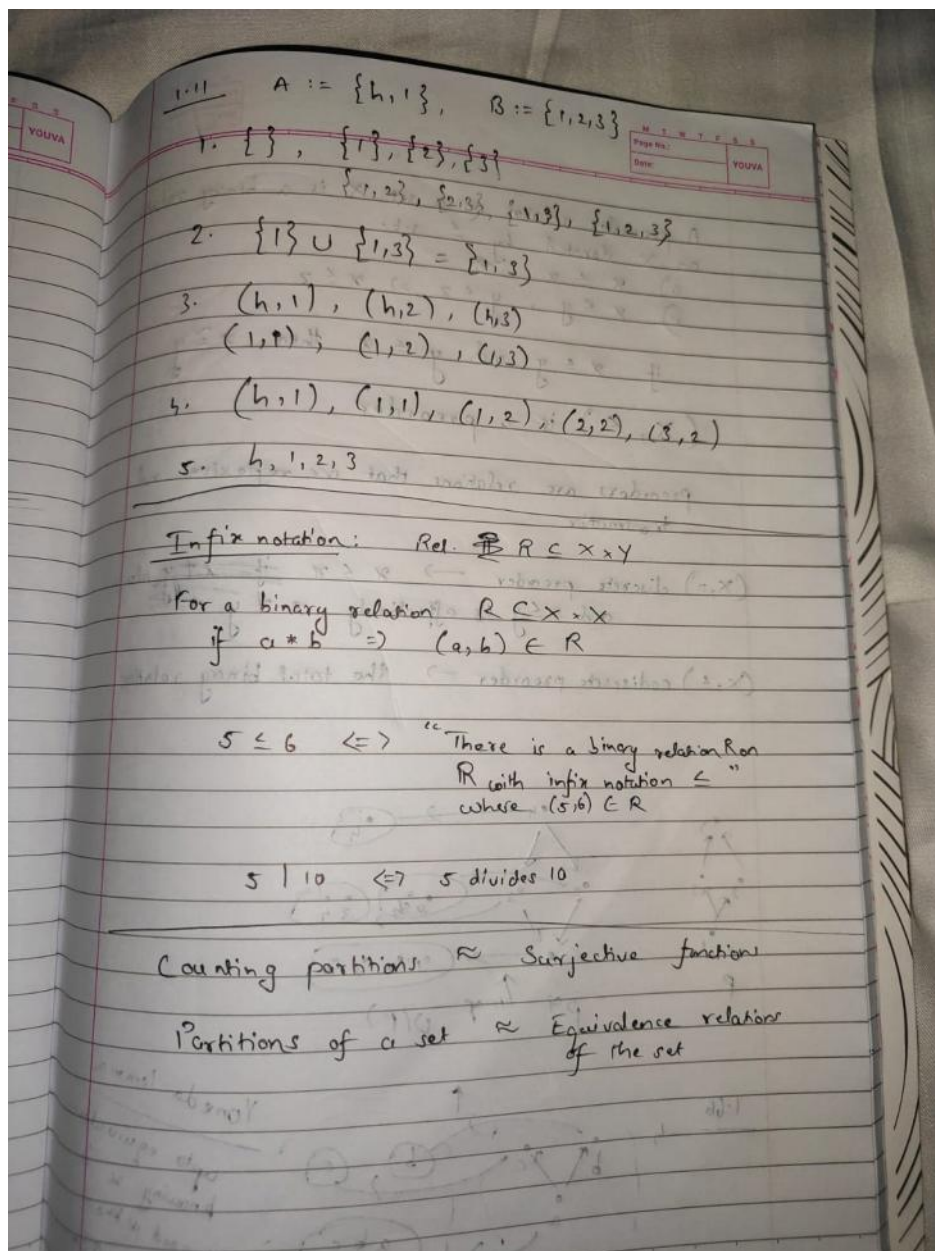 YOUVA
1.11 A := {h, 1}, B := {1,2,3}
M T W T F S S
Page No.:
Date:
YOUVA
1. { }, {1}, {2}, {3}
{1, 2}, {2,3}, {1,3}, {1,2,3}
2. {1} ∪ {1,3} = {1,3}
3. (h, 1), (h,2), (h,3)
(1,1), (1,2), (1,3)
4. (h,1), (1,1), (1,2), (2,2), (3,2)
5. h, 1, 2, 3
Infix notation: Rel. R ⊆ X × Y
For a binary relation R ⊆ X × X
if a * b => (a, b) ∈ R
5 ≤ 6 <=> "There is a binary relation R on
ℝ with infix notation ≤ "
where (5,6) ∈ R
5 | 10 <=> 5 divides 10
Counting partitions ≈ Surjective functions
Partitions of a set ≈ Equivalence relations
of the set